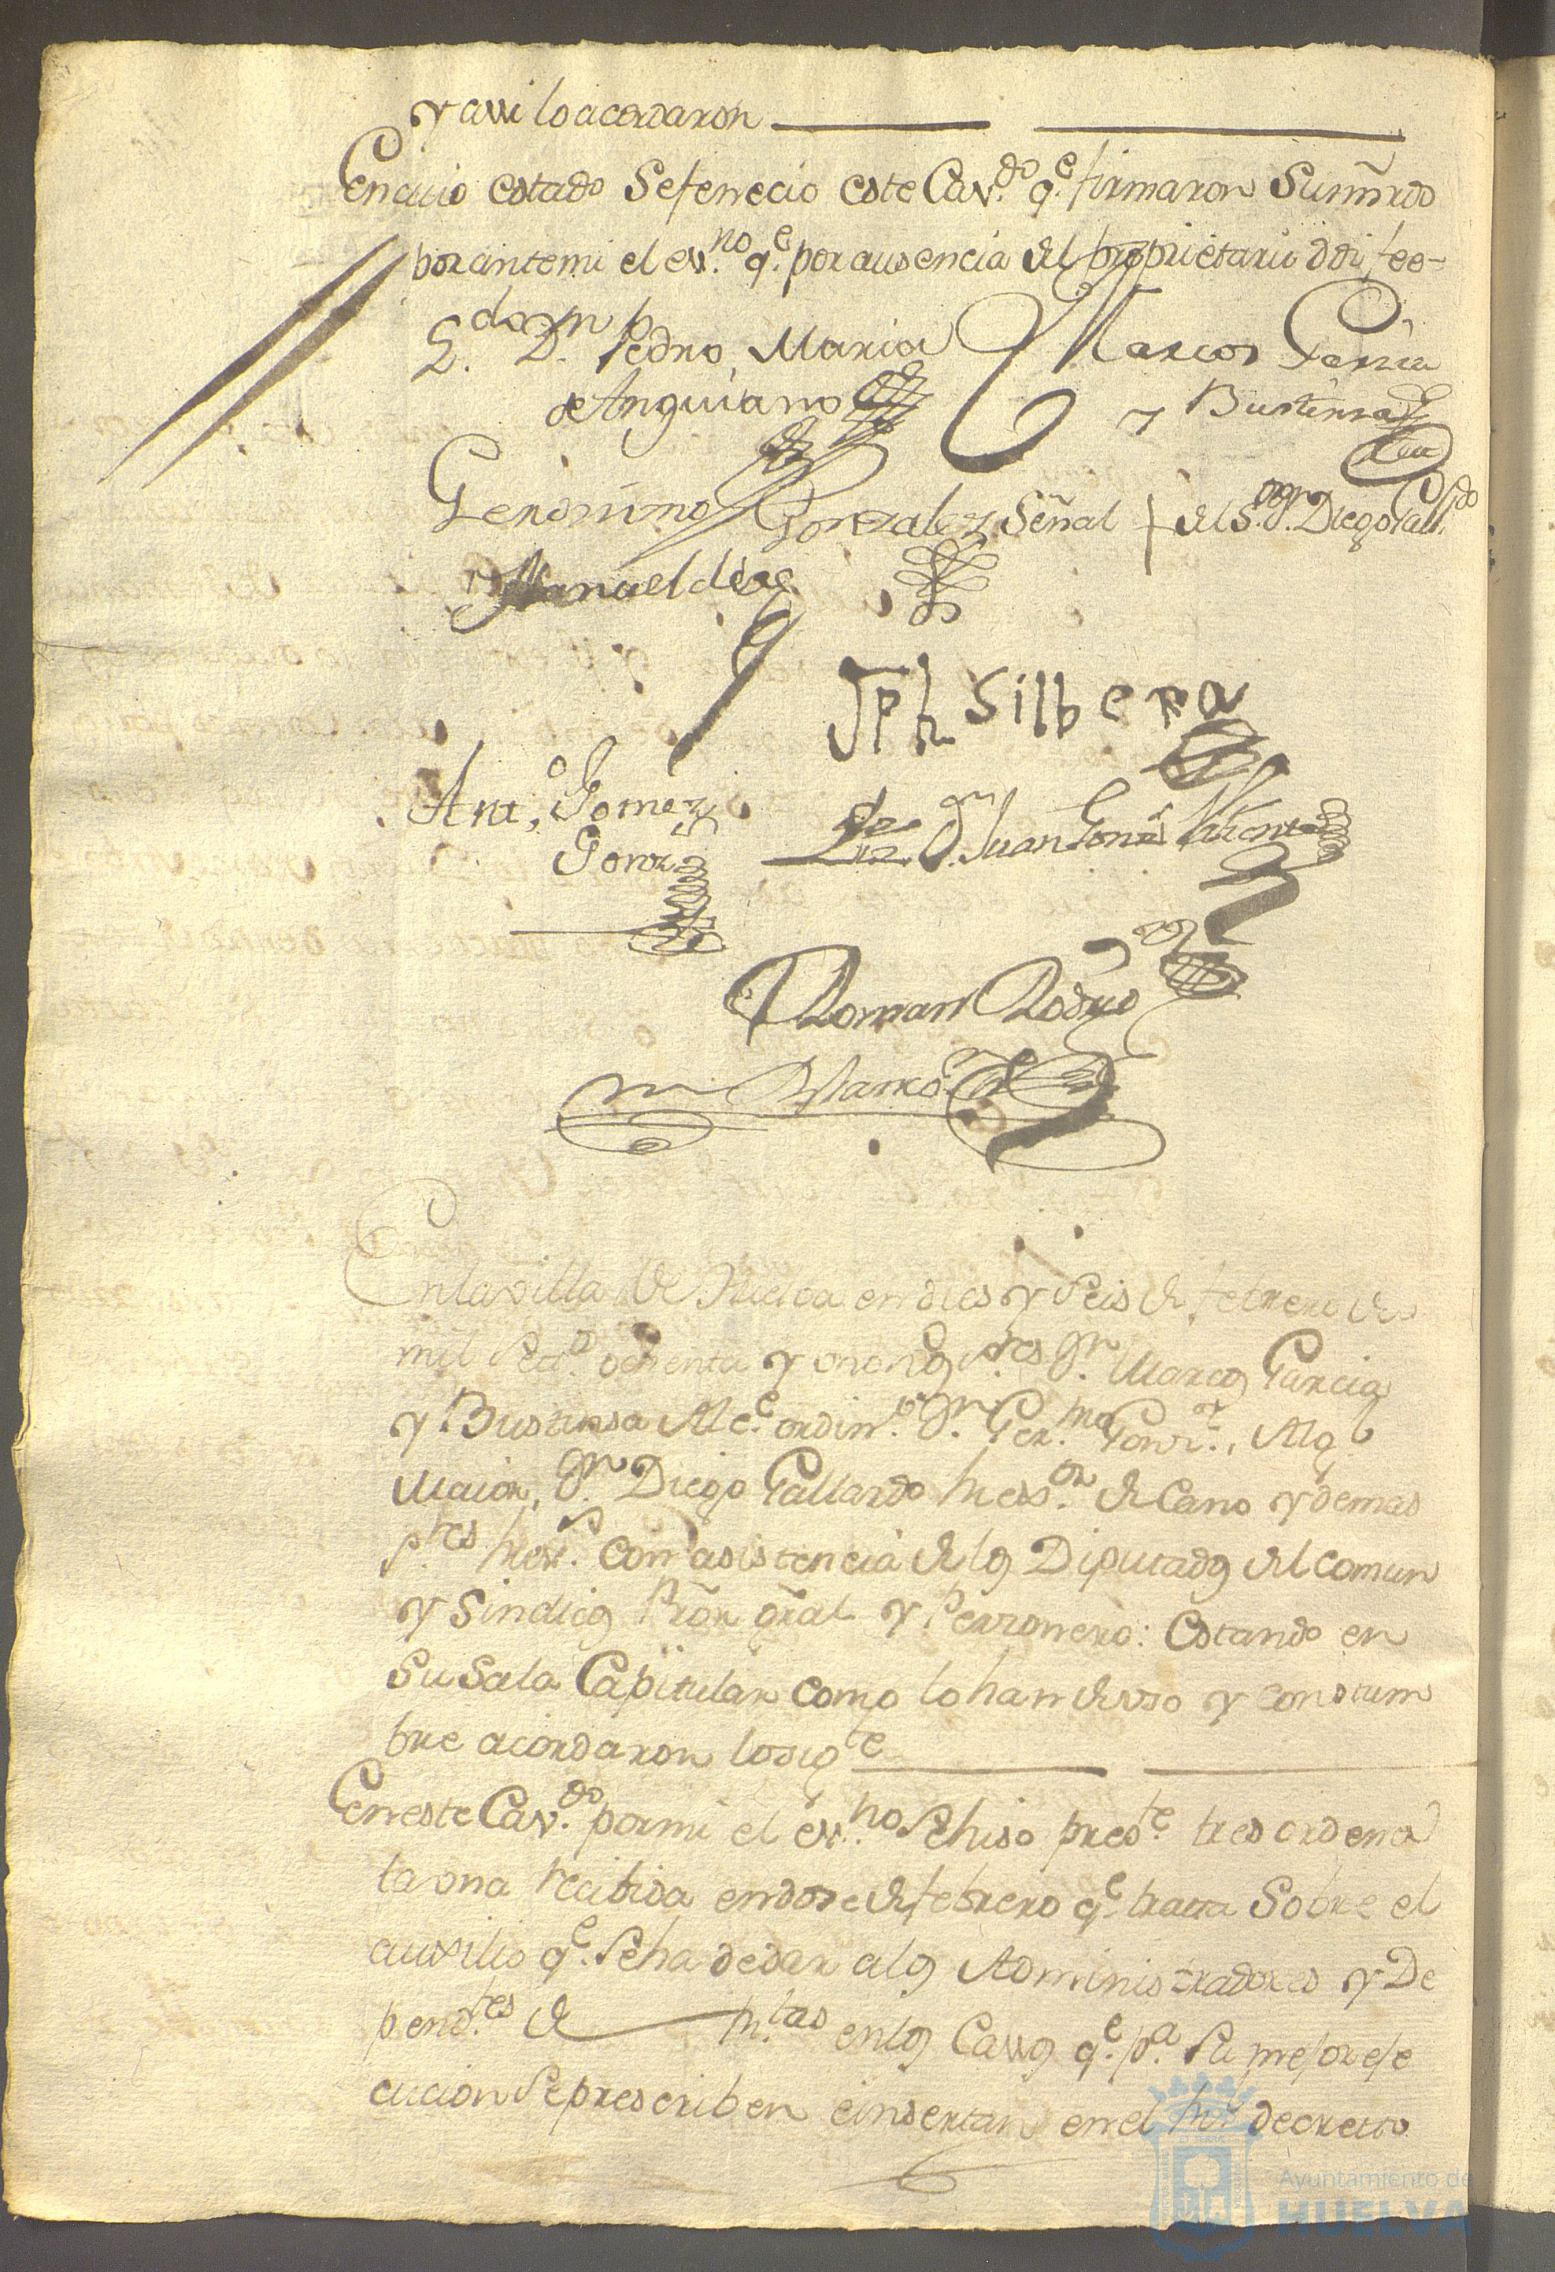 y assi lo acordaron
En cuio estado se feneció este Cav.do q.e firmaron Su mrds
por ante mi el ess.no q.e por ausencia del proprietario doi fee=
L.do D.n Pedro Maria
de Anguiano
Marcos Garcia
y Bustinsa
Geronimo Gonzalez
Señal † del S.or D.n Diego Gall.do
Manuel diaz
Jph Silbera
Ant.o Gomez
Gonz
Lz.do D.n Juan Gonz
Roman Rodrig
En la villa de Huelva en dies y seis de febrero de
mil sett.s ochenta y uno los s.res D.n Marcos Garcia
y Bustinsa Alc.e ordin.o D.n Ger.mo Gonz.z, Alg.l
Maior, D.n Diego Gallardo Rexs.or de Cano y demas
s.res Rex.s con asistencia de los Diputados del comun
y Sindicos Prõr grãl y Personero: Estando en
su Sala Capitular como lo han de uso y constum
bre acordaron lo sig.te
En este Cav.do por mi el ess.no se hiso pres.te tres ordenes
la una recibida en dose de febrero q.e tratta Sobre el
auxilio q.e se ha de dar a los Administradores y De
pend.tes de R.tas en los Casos q.e p.a su mejor eje
cucion se prescriben e insertan en el R.l decretto
Ayuntamiento de
HUELVA